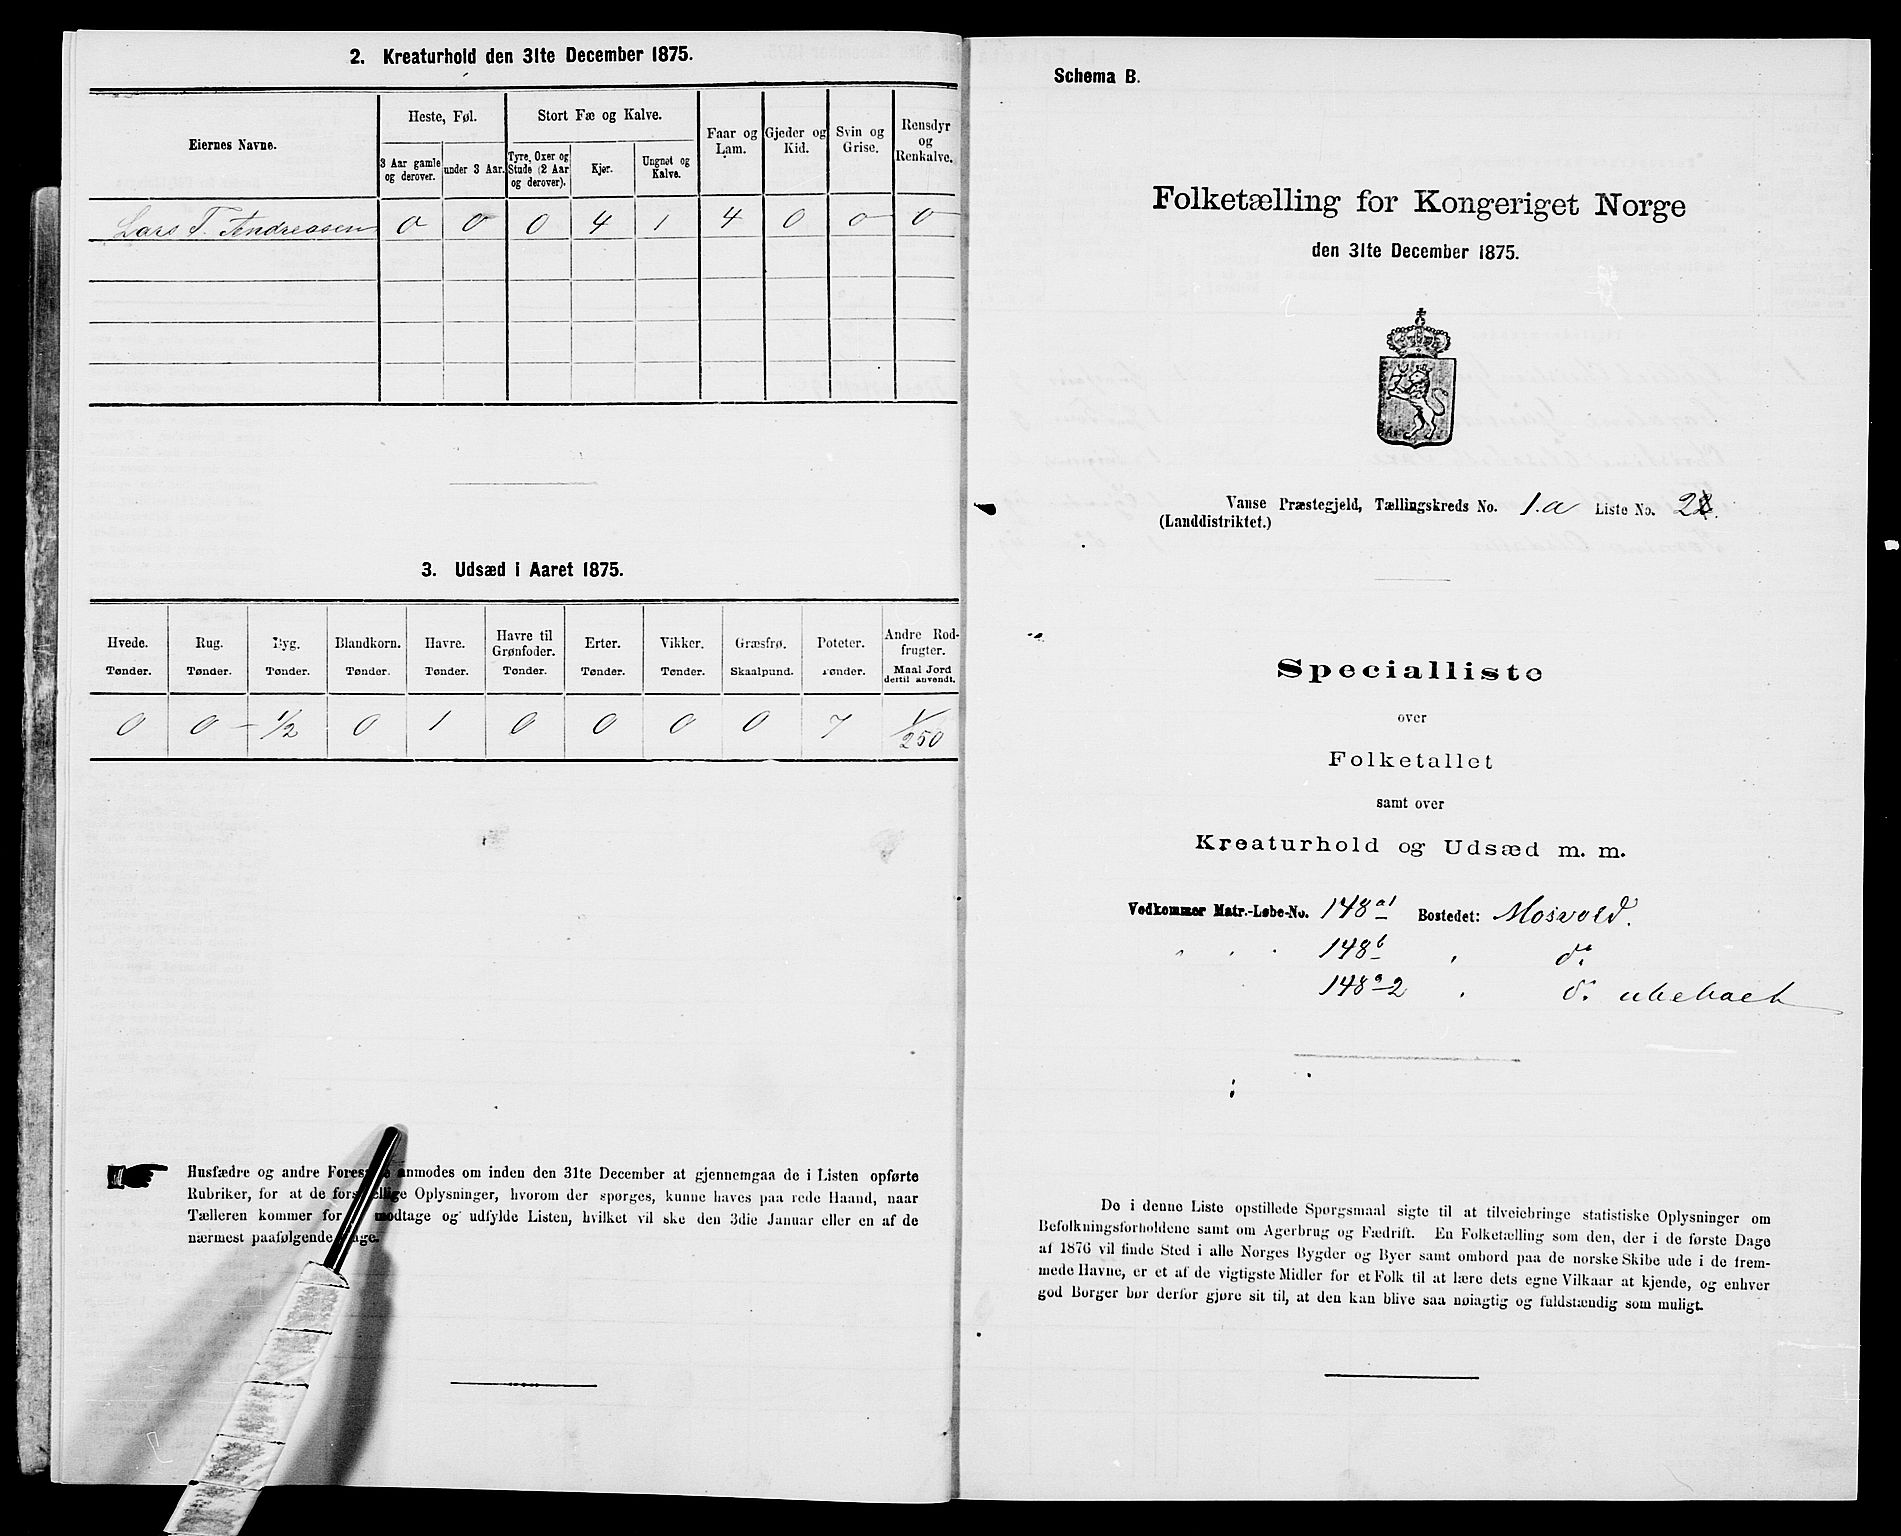 2. Kreaturhold den 31te December 1875.
Eiernes Navne.
Heste, Føl.
Stort Fæ og Kalve.
Faar og Lam.
Gjeder og Kid.
Svin og Grise.
Rensdyr og Renkalve.
3 Aar gamle og derover.
under 3 Aar.
Tyre, Oxer og Stude (2 Aar og derover).
Kjør.
Ungnøt og Kalve.
Lars T. Andreasen 0 0 0 4 1 4 0 0 0
3. Udsæd i Aaret 1875.
Hvede. Rug. Byg. Blandkorn. Havre. Havre til Grønfoder. Erter. Vikker. Græsfrø. Poteter. Andre Rodfrugter.
Tønder. Tønder. Tønder. Tønder. Tønder. Tønder. Tønder. Tønder. Skaalpund. Tønder. Maal Jord dertil anvendt.
0 0 - 1/2 0 1 0 0 0 0 7 1/250
Husfædre og andre anmodes om inden den 31te December at gjennemgaa de i Listen opførte
Rubriker, for at de Oplysninger, hvorom der spørges, kunne haves paa rede Haand, naar
Tælleren kommer for modtage og udfylde Listen, hvilket vil ske den 3die Januar eller en af de
nærmest paafølgende
Schema B.
Folketælling for Kongeriget Norge
den 31te December 1875.
Vanse Præstegjeld, Tællingskreds No. 1.a Liste No.
(Landdistriktet.)
Specialliste
over
Folketallet
samt over
Kreaturhold og Udsæd m. m.
Vedkommer Matr.-Løbe-No. 148 a1 Bostedet: Mosvold.
148 b do
148 a 2 do ubeboet
De i denne Liste opstillede Spørgsmaal sigte til at tilveiebringe statistiske Oplysninger om
Befolkningsforholdene samt om Agerbrug og Fædrift. En Folketælling som den, der i de første Dage
af 1876 vil finde Sted i alle Norges Bygder og Byer samt ombord paa de norske Skibe ude i de frem-
mede Havne, er et af de vigtigste Midler for et Folk til at lære dets egne Vilkaar at kjende, og enhver
god Borger bør derfor gjøre sit til, at den kan blive saa nøiagtig og fuldstændig som muligt.